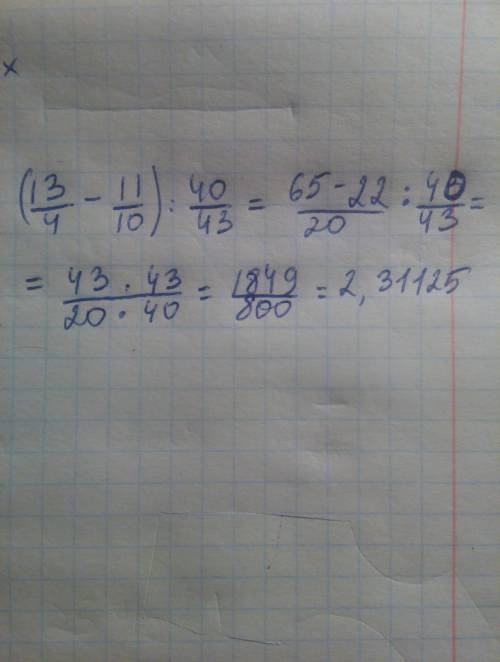 x
(13/4 - 11/10) : 40/43 = 65-22/20 : 40/43 =
= 43 · 43/20 · 40 = 1849/800 = 2,31125